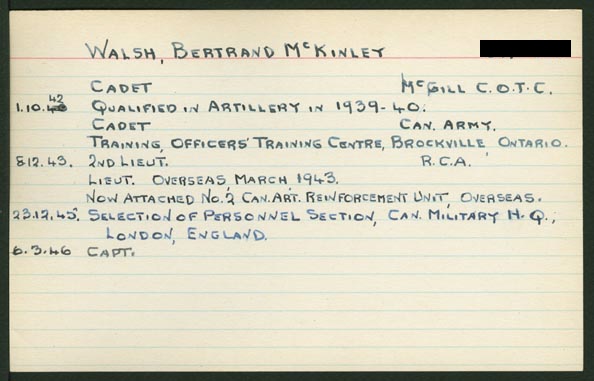 WALSH, BERTRAND McKINLEY
CADET McGILL C.O.T.C.
42
1.10. QUALIFIED IN ARTILLERY IN 1939-40.
CADET CAN. ARMY.
TRAINING, OFFICERS' TRAINING CENTRE, BROCKVILLE, ONTARIO.
8.12.43. 2ND LIEUT. R.C.A.
LIEUT. OVERSEAS, MARCH 1943.
NOW ATTACHED NO. 2 CAN. ART. REINFORCEMENT UNIT, OVERSEAS.
23.12.45. SELECTION OF PERSONNEL SECTION, CAN. MILITARY H.Q.,
LONDON, ENGLAND.
6.3.46 CAPT.